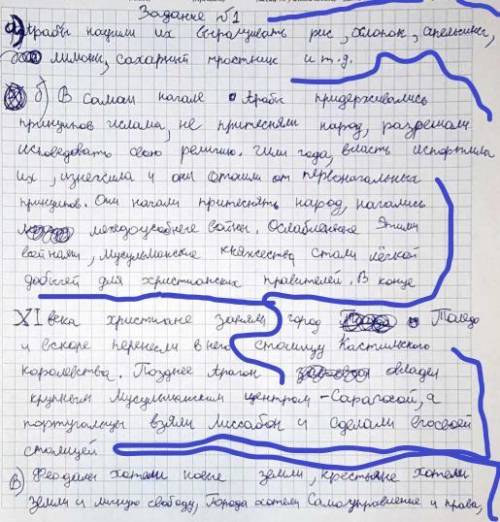 Задание №1
а) Арабы научили их выращивать рис, хлопок, апельсины,
лимоны, сахарный тростник и т.д.
б) В самом начале Арабы придерживались
принципов ислама, не притесняли народ, разрешали
исповедовать свою религию. Шли года, власть испортила
их, изнежила и они отошли от первоначальных
принципов. Они начали притеснять народ, начались
междоусобные войны. Ослабленные этими
войнами, мусульманские княжества стали лёгкой
добычей для христианских правителей. В конце
XI века христиане заняли город Толедо
и вскоре перенесли в него столицу Кастильского
королевства. Позднее Арагон овладел
крупным мусульманским центром - Сарагосой, а
португальцы взяли Лиссабон и сделали его своей
столицей
в) Феодалы хотели новые земли, крестьяне хотели
земли и личную свободу, города хотели самоуправление и права,